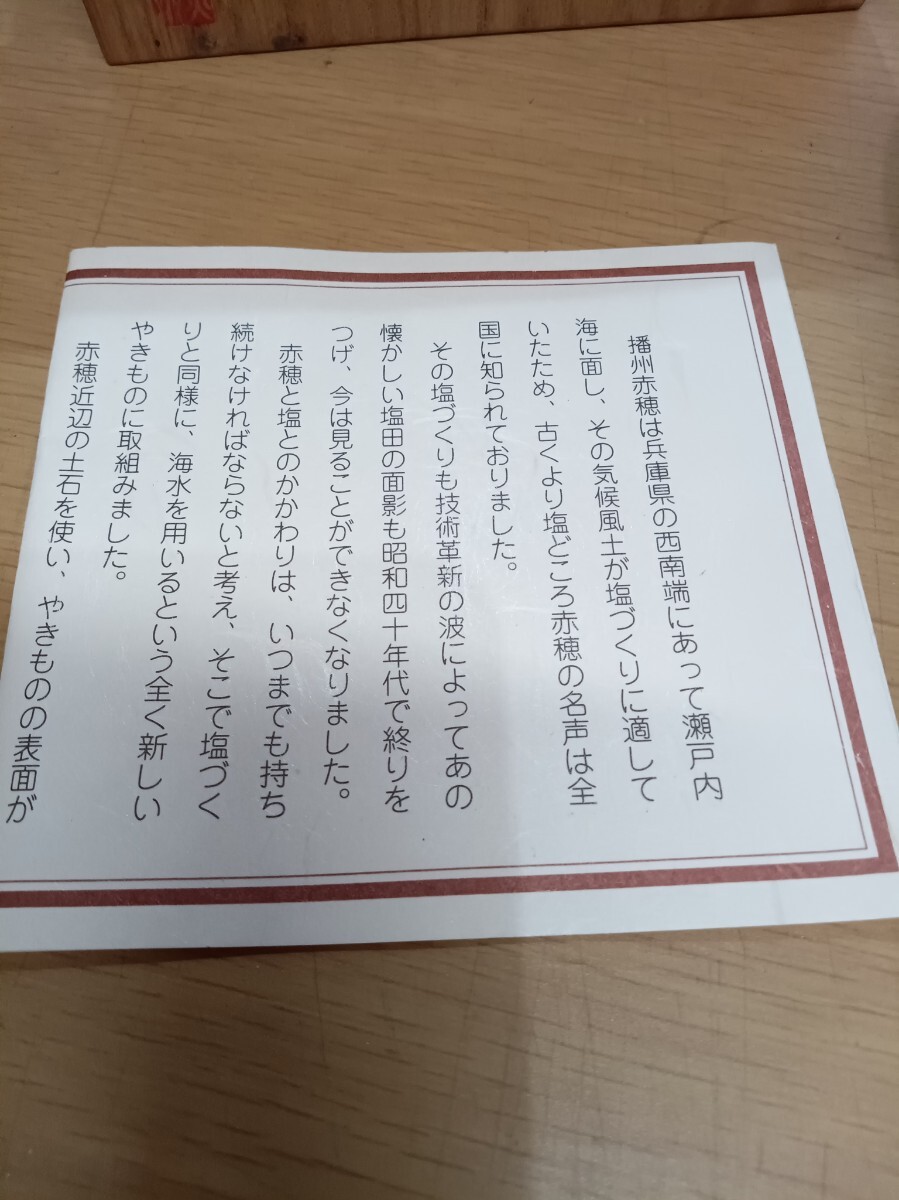 播州赤穂は兵庫県の西南端にあって瀬戸内
海に面し、その気候風土が塩づくりに適して
いたため、古くより塩どころ赤穂の名声は全
国に知られておりました。
その塩づくりも技術革新の波によってあの
懐かしい塩田の面影も昭和四十年代で終りを
つげ、今は見ることができなくなりました。
赤穂と塩とのかかわりは、いつまでも持ち
続けなければならないと考え、そこで塩づく
りと同様に、海水を用いるという全く新しい
やきものに取組みました。
赤穂近辺の土石を使い、やきものの表面が